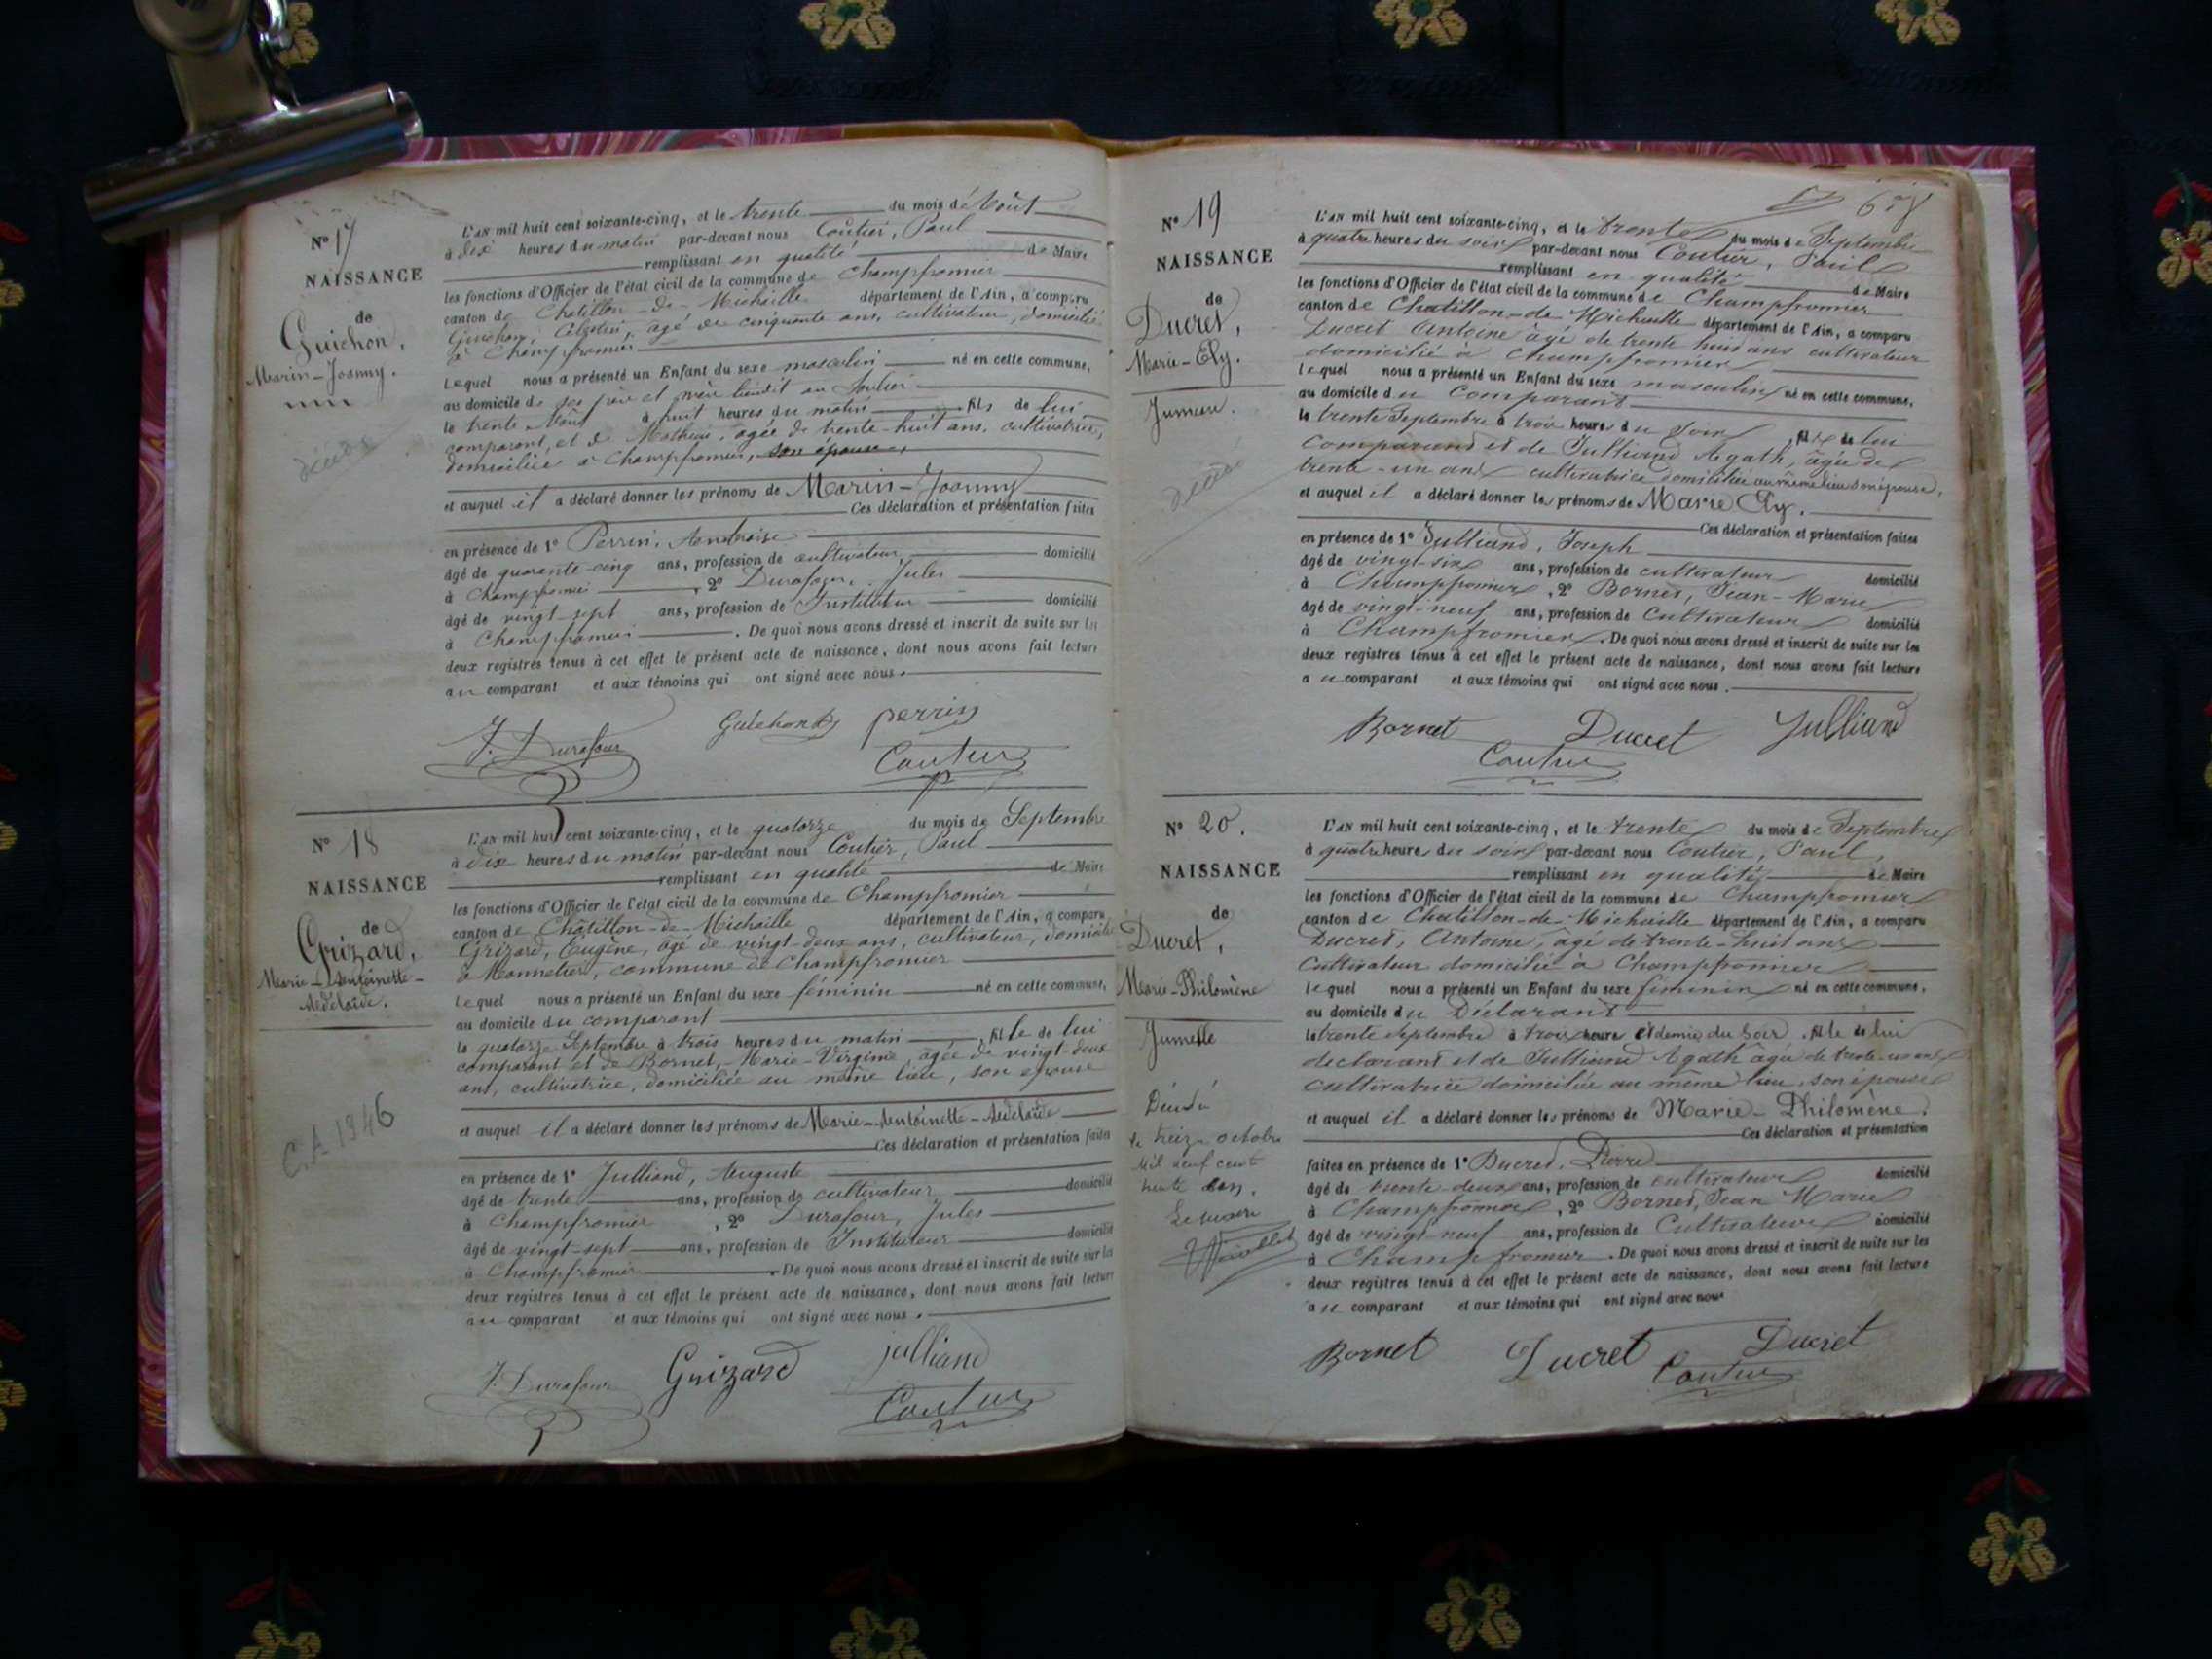 N° 17
NAISSANCE
de
Guichon,
Marin-Joanny.
décédé
L'AN mil huit cent soixante-cinq, et le trente du mois d'Août
à dix heures du matin par-devant nous Coutier, Paul
remplissant en qualité de Maire
les fonctions d'Officier de l'état civil de la commune de Champfromier
canton de Châtillon-de-Michaille département de l'Ain, a comparu
Guichon, Célestin, âgé de cinquante ans, cultivateur, domicilié
à Champfromier
Lequel nous a présenté un Enfant du sexe masculin né en cette commune,
au domicile de ses père et mère
le trente Août à huit heures du matin fils de lui
comparant, et de Mathieu, âgée de trente-huit ans, cultivatrice,
domiciliée à Champfromier, son épouse,
et auquel il a déclaré donner les prénoms de Marin-Joanny
Ces déclaration et présentation faites
en présence de 1° Perrin, Ambroise
âgé de quarante-cinq ans, profession de cultivateur domicilié
à Champfromier, 2° Durafour, Jules
âgé de vingt sept ans, profession de Instituteur domicilié
à Champfromier. De quoi nous avons dressé et inscrit de suite sur les
deux registres tenus à cet effet le présent acte de naissance, dont nous avons fait lecture
au comparant et aux témoins qui ont signé avec nous.
J. Durafour Guichon perrin
Coutier
N° 18
NAISSANCE
de
Grizard,
Marie-Antoinette-
Adélaïde.
C.A 1946
L'AN mil huit cent soixante-cinq, et le quatorze du mois de Septembre
à dix heures du matin par-devant nous Coutier, Paul
remplissant en qualité de Maire
les fonctions d'Officier de l'état civil de la commune de Champfromier
canton de Châtillon-de-Michaille département de l'Ain, a comparu
Grizard, Eugène, âgé de vingt-deux ans, cultivateur, domicilié
à Monnetier, commune de Champfromier
Lequel nous a présenté un Enfant du sexe féminin né en cette commune,
au domicile du comparant
le quatorze Septembre à trois heures du matin, fille de lui
comparant et de Bornet, Marie-Virginie, âgée de vingt-deux
ans, cultivatrice, domiciliée au même lieu, son épouse
et auquel il a déclaré donner les prénoms de Marie-Antoinette-Adélaïde
Ces déclaration et présentation faites
en présence de 1° Julliand, Auguste
âgé de trente ans, profession de cultivateur domicilié
à Champfromier, 2° Durafour, Jules
âgé de vingt-sept ans, profession de Instituteur domicilié
à Champfromier. De quoi nous avons dressé et inscrit de suite sur les
deux registres tenus à cet effet le présent acte de naissance, dont nous avons fait lecture
au comparant et aux témoins qui ont signé avec nous.
J. Durafour Grizard julliand
Coutier
N° 19
NAISSANCE
de
Ducret,
Marie-Ely.
Jumeau.
décédé
L'AN mil huit cent soixante-cinq, et le trente du mois de Septembre
à quatre heures du soir par-devant nous Coutier, Paul
remplissant en qualité de Maire
les fonctions d'Officier de l'état civil de la commune de Champfromier
canton de Chatillon-de-Michaille département de l'Ain, a comparu
Ducret Antoine âgé de trente huit ans cultivateur
domicilié à Champfromier
lequel nous a présenté un Enfant du sexe masculin né en cette commune,
au domicile du Comparant
le trente Septembre à trois heures du Soir, fils de lui
Comparant et de Julliand Agath, âgée de
trente-un ans cultivatrice domiciliée au même lieu son épouse,
et auquel il a déclaré donner les prénoms de Marie Ely.
Ces déclaration et présentation faites
en présence de 1° Julliand, Joseph
âgé de vingt-six ans, profession de cultivateur domicilié
à Champfromier, 2° Bornet, Jean-Marie
âgé de vingt-neuf ans, profession de Cultivateur domicilié
à Champfromier. De quoi nous avons dressé et inscrit de suite sur les
deux registres tenus à cet effet le présent acte de naissance, dont nous avons fait lecture
au comparant et aux témoins qui ont signé avec nous.
Bornet Ducret Julliand
Coutier
N° 20.
NAISSANCE
de
Ducret,
Marie-Philomène
Jumelle
Décédé
le treize octobre
mil neuf cent
L'AN mil huit cent soixante-cinq, et le trente du mois de Septembre
à quatre heures du soir par-devant nous Coutier, Paul,
remplissant en qualité de Maire
les fonctions d'Officier de l'état civil de la commune de Champfromier
canton de Chatillon-de-Michaille département de l'Ain, a comparu
Ducret, Antoine, âgé de trente-huit ans
Cultivateur domicilié à Champfromier
lequel nous a présenté un Enfant du sexe féminin né en cette commune,
au domicile du Déclarant
le trente Septembre à trois heure et demie du Soir, fille de lui
déclarant et de Julliand Agath âgée de trente-un ans
cultivatrice domiciliée au même lieu, son épouse
et auquel il a déclaré donner les prénoms de Marie-Philomène.
Ces déclaration et présentation
faites en présence de 1° Ducret, Pierre
âgé de trente deux ans, profession de cultivateur domicilié
à Champfromier, 2° Bornet, Jean Marie
âgé de vingt-neuf ans, profession de Cultivateur domicilié
à Champfromier. De quoi nous avons dressé et inscrit de suite sur les
deux registres tenus à cet effet le présent acte de naissance, dont nous avons fait lecture
au comparant et aux témoins qui ont signé avec nous
Bornet Ducret Ducret
Coutier